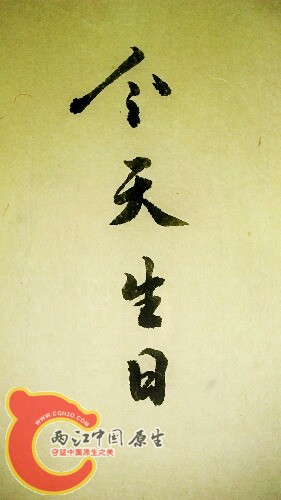 今天生日
WWW.CQH2O.COM
两江中国原生
守望中国原生之美